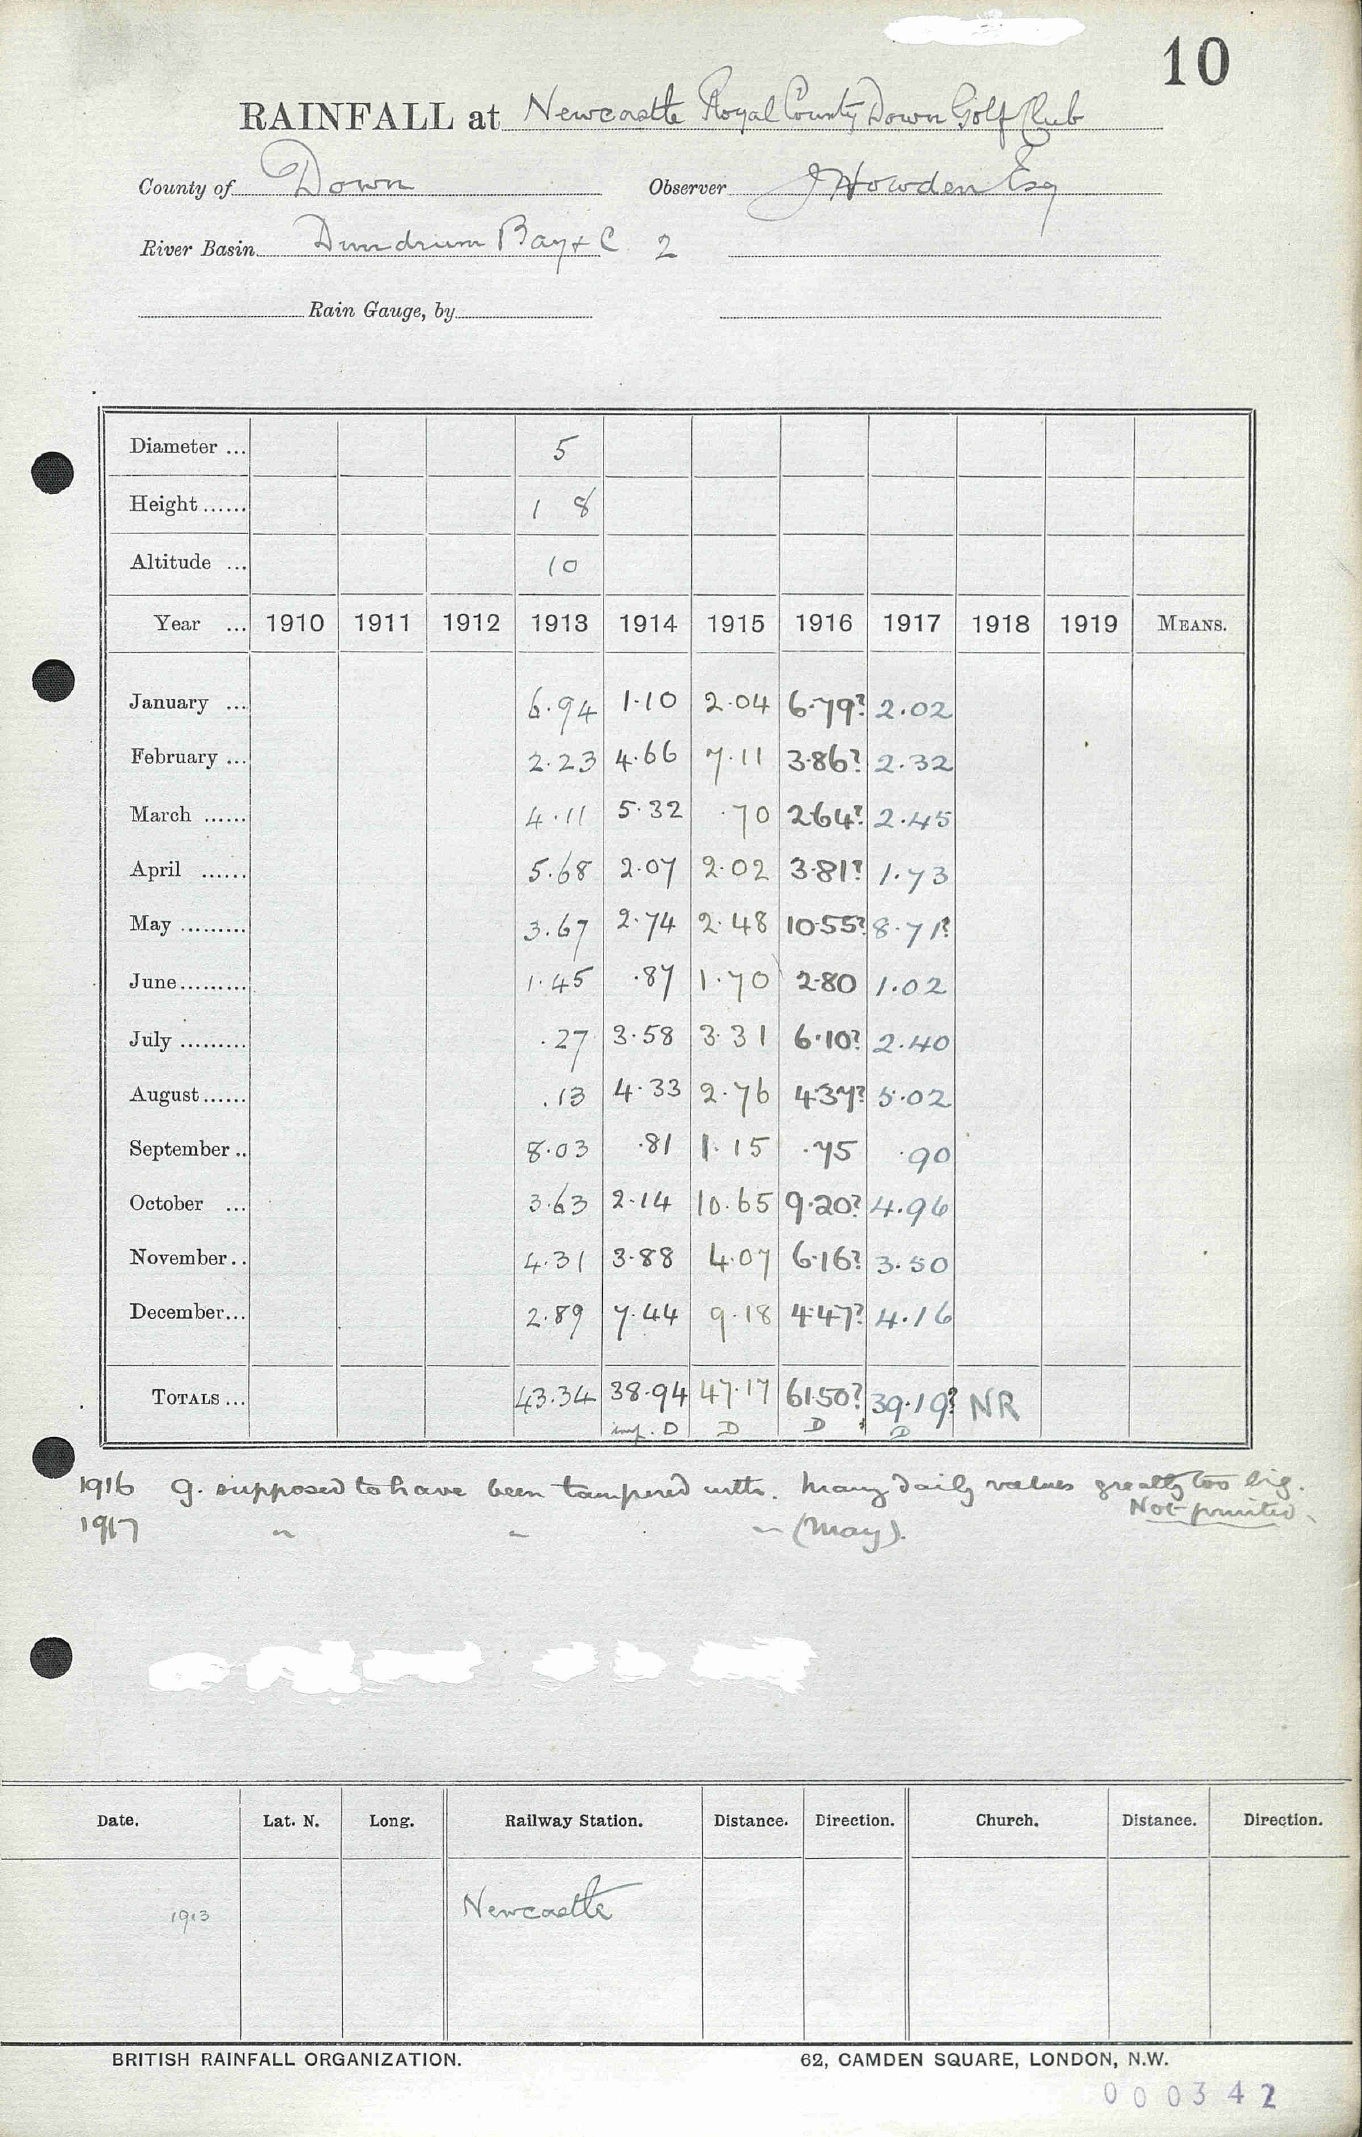 10
RAINFALL at Newcastle Royal County Down Golf Club
County of Down Observer J Howden Esq
River Basin Dundrum Bay &c 2
Rain Gauge, by
Diameter ... 5
Height ...... 1 8
Altitude ... 10
Year ... 1910 1911 1912 1913 1914 1915 1916 1917 1918 1919 MEANS.
January ... 6.94 1.10 2.04 6.79? 2.02
February ... 2.23 4.66 7.11 3.86? 2.32
March ...... 4.11 5.32 .70 2.64? 2.45
April ...... 5.68 2.07 2.02 3.81? 1.73
May ......... 3.67 2.74 2.48 10.55? 8.71?
June ......... 1.45 .87 1.70 2.80 1.02
July ......... .27 3.58 3.31 6.10? 2.40
August ...... .13 4.33 2.76 4.37? 5.02
September .. 8.03 .81 1.15 .75 .90
October ... 3.63 2.14 10.65 9.20? 4.96
November .. 4.31 3.88 4.07 6.16? 3.50
December ... 2.89 7.44 9.18 4.47? 4.16
TOTALS ... 43.34 38.94 47.17 61.50? 39.19? NR
inf. D D D D
1916 g. supposed to have been tampered with. Many daily values greatly too big.
Not printed.
1917 " " " (May).
Date. Lat. N. Long. Railway Station. Distance. Direction. Church. Distance. Direction.
1913 Newcastle
BRITISH RAINFALL ORGANIZATION. 62, CAMDEN SQUARE, LONDON, N.W.
000342